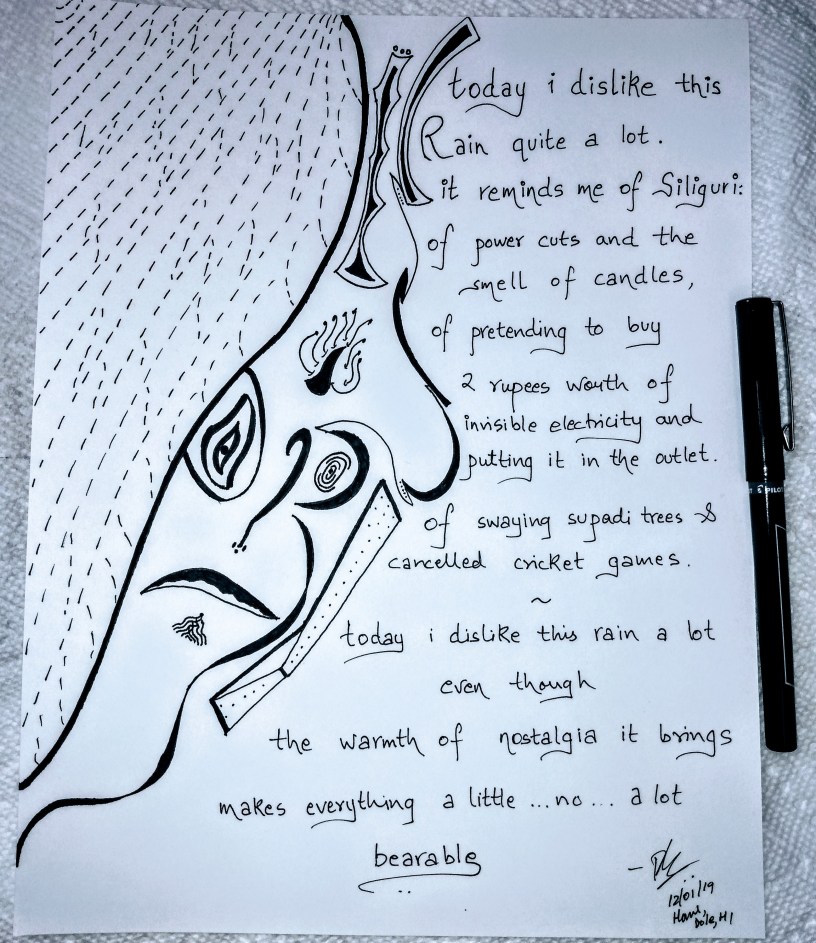 today i dislike this
Rain quite a lot.
it reminds me of Siliguri:
of power cuts and the
smell of candles,
of pretending to buy
2 rupees worth of
invisible electricity and
putting it in the outlet.
of swaying supadi trees &
cancelled cricket games.
~
today i dislike this rain a lot
even though
the warmth of nostalgia it brings
makes everything a little ... no ... a lot
bearable
12/01/19
Dole, HI
PILOT